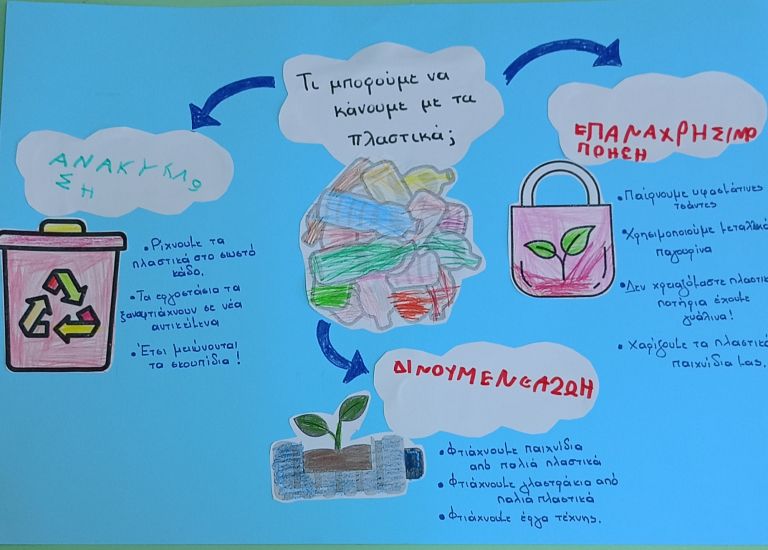 Τι μπορούμε να
κάνουμε με τα
πλαστικά;
ΑΝΑΚΥΚΛΩ
ΣΗ
• Ρίχνουμε τα
πλαστικά στο σωστό
κάδο.
• Τα εργοστάσια τα
ξαναφτιάχνουν σε νέα
αντικείμενα
• Έτσι μειώνονται
τα σκουπίδια!
ΕΠΑΝΑΧΡΗΣΙΜΟ
ΠΟΙΗΣΗ
• Παίρνουμε υφασμάτινες
τσάντες
• Χρησιμοποιούμε μεταλλικά
παγουρίνα
• Δεν χρειαζόμαστε πλαστικ
ποτήρια έχουμε
γυάλινα!
• Χαρίζουμε τα πλαστικά
παιχνίδια μας.
ΔΙΝΟΥΜΕ ΝΕΑ ΖΩΗ
• Φτιάχνουμε παιχνίδια
από παλιά πλαστικά
• Φτιάχνουμε γλαστράκια από
παλιά πλαστικά
• Φτιάχνουμε έργα τέχνης.